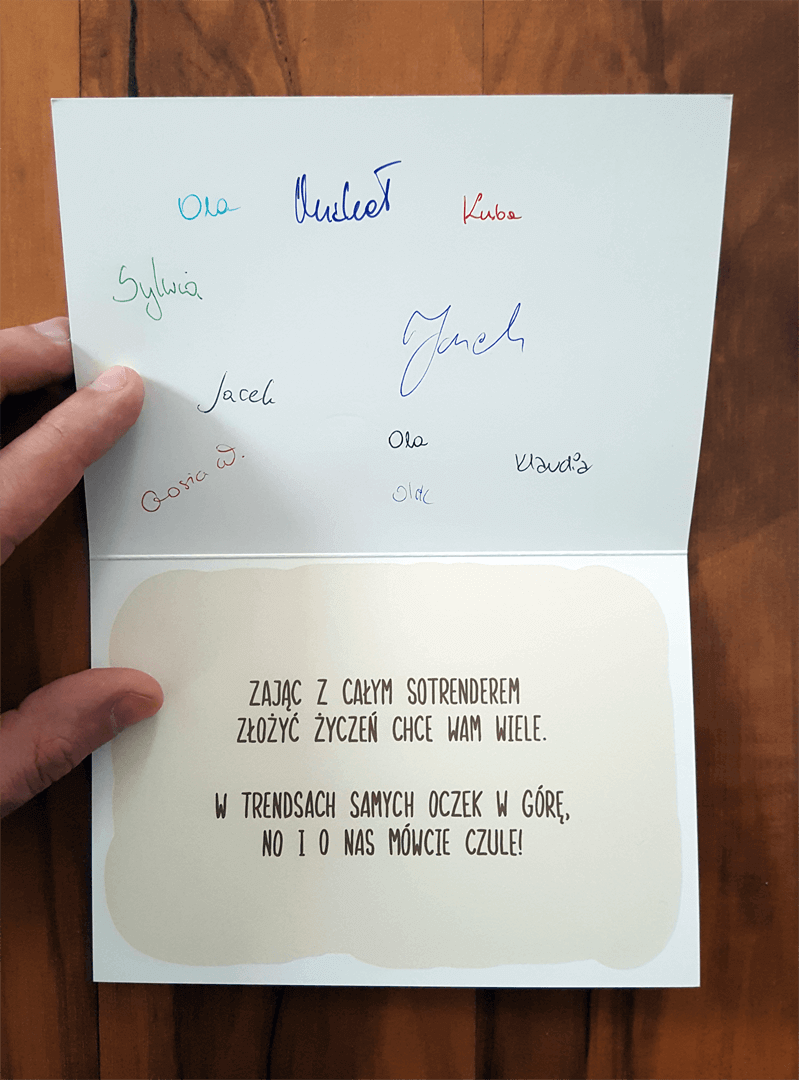 Ola Michał Kuba
Sylwia
Jacek
Ola
Klaudia
Gosia W.
ZAJĄC Z CAŁYM SOTRENDEREM
ZŁOŻYĆ ŻYCZEŃ CHCE WAM WIELE.
W TRENDSACH SAMYCH OCZEK W GÓRĘ,
NO I O NAS MÓWCIE CZULE!